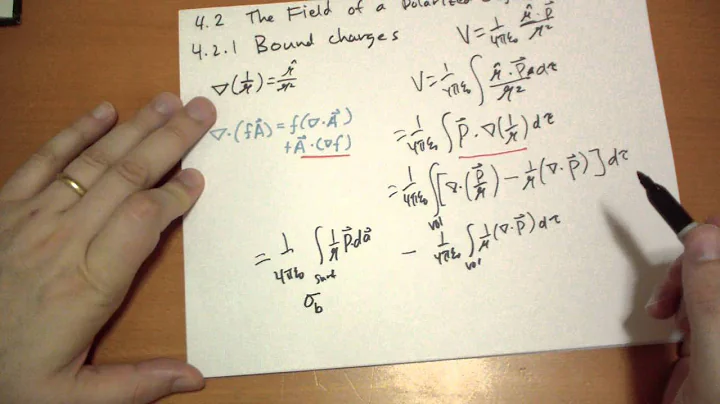 4.2 The Field of a Polarized
4.2.1 Bound charges
V = 1/4πε₀ r̂·p⃗/r²
∇(1/r) = r̂/r²
V = 1/4πε₀ ∫ r̂·P⃗ dτ/r²
∇·(fA⃗) = f(∇·A⃗)
+A⃗·(∇f)
= 1/4πε₀ ∫ P⃗·∇(1/r) dτ
= 1/4πε₀ ∫vol [∇·(P⃗/r) − 1/r(∇·P⃗)] dτ
= 1/4πε₀ ∫surf 1/r P⃗·da⃗ − 1/4πε₀ ∫vol 1/r(∇·P⃗) dτ
σb